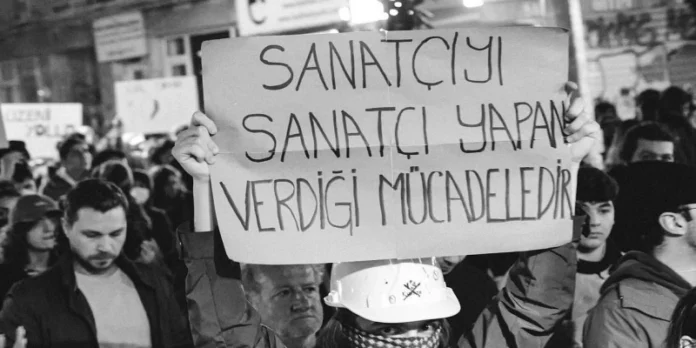 SANATÇIYI
SANATÇI YAPAN
VERDİĞİ MÜCADELEDİR